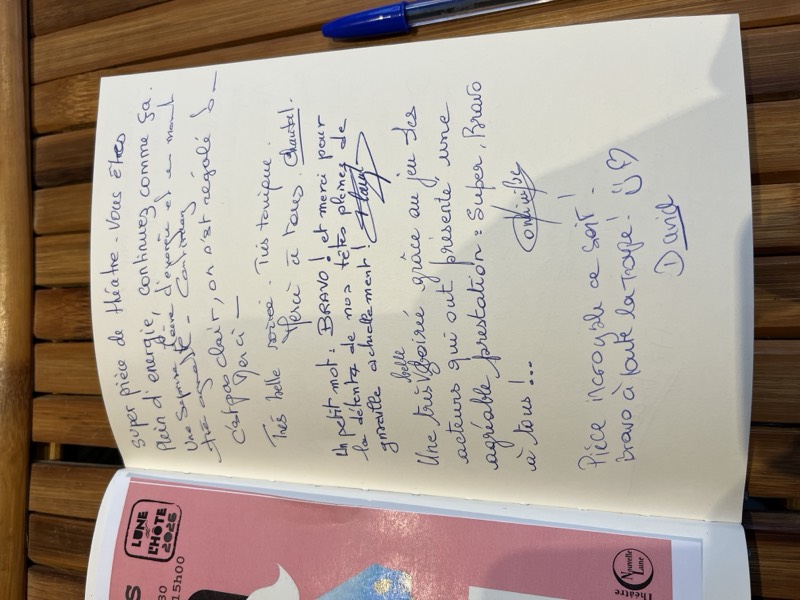 Super pièce de théâtre - Vous êtes
plein d'énergie, continuez comme ça.
Une pleine d'énergie et un moment
très - Continuez
c'est pas clair, on s'est régalé
Merci -
Très belle soirée. Très tonique.
Merci à tous. Chantal.
Un petit mot : BRAVO ! et merci pour
la détente de nos têtes pleines de
grisaille actuellement !
Une très belle soirée grâce au jeu des
acteurs qui ont présenté, une
agréable prestation : Super, Bravo
à tous !...
Pièce incroyable ce soir !
bravo à toute la troupe ! ♡
David
LUNE
L'HÔTE
2026
S
30
15h00
Théâtre
Nouvelle
Lune